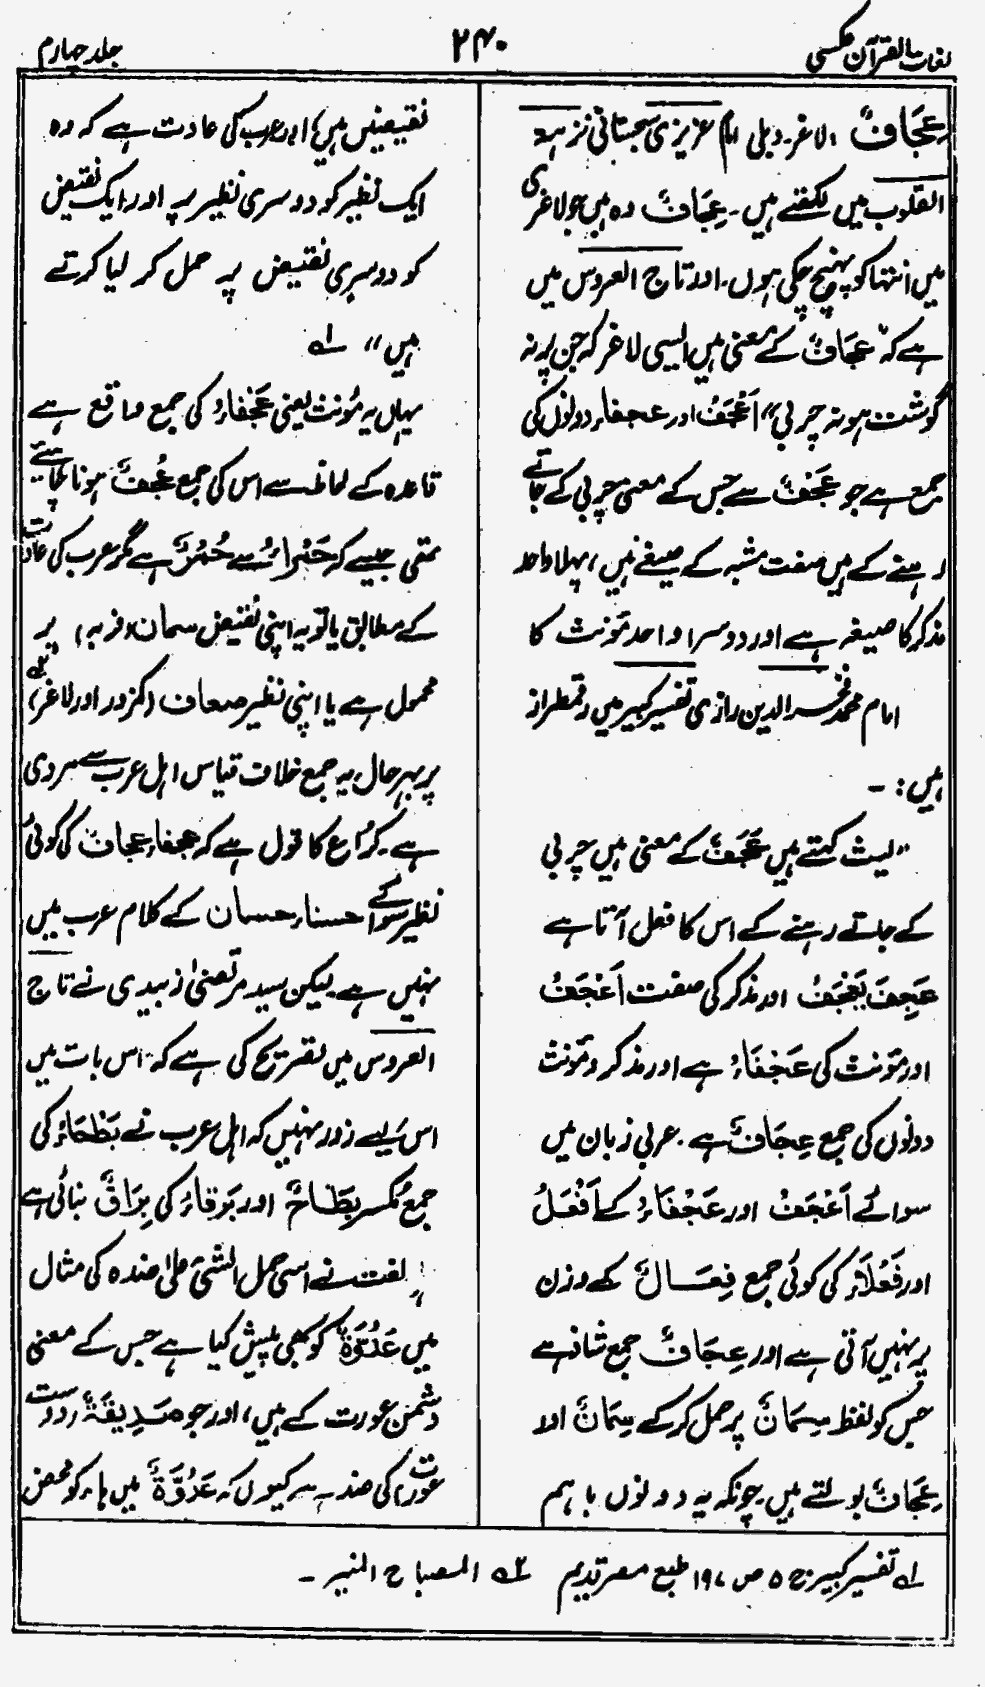 لغات القرآن عکسی
۲۴۰
جلد چہارم
عِجَافٌ الاغر۔ دبلی امام عزیزی سجستانی نزہۃ
القلوب میں لکھتے ہیں۔ عِجَافٌ وہ ہیں جو لاغری
میں انتہا کو پہنچ چکی ہوں۔ اور تاج العروس میں
ہے کہ "عِجَافٌ کے معنی ہیں ایسی لاغر کہ جن پر نہ
گوشت ہو نہ چربی" اَعْجَفُ اور عجفاء دونوں کی
جمع ہے جو عَجَفٌ سے جس کے معنی چربی کے جاتے
رہنے کے ہیں صفت مشبہ کے صیغے ہیں، پہلا واحد
مذکر کا صیغہ ہے اور دوسرا واحد مؤنث کا
امام محمد فخر الدین رازی تفسیر کبیر میں رقمطراز
ہیں:۔
"لیث کہتے ہیں عَجَفٌ کے معنی ہیں چربی
کے جاتے رہنے کے اس کا فعل آتا ہے
عَجِفَ یَعْجَفُ اور مذکر کی صفت اَعْجَفُ
اور مؤنث کی عَجْفَاءُ ہے اور مذکر و مؤنث
دونوں کی جمع عِجَافٌ ہے۔ عربی زبان میں
سوائے اَعْجَفُ اور عَجْفَاءُ کے اَفْعَلُ
اور فَعْلَاءُ کی کوئی جمع فِعَالٌ کے وزن
پر نہیں آتی ہے اور عِجَافٌ جمع شاذ ہے
جس کو لفظ سِمَانٌ پر حمل کر کے سِمَانٌ اور
عِجَافٌ بولتے ہیں۔ چونکہ یہ دونوں باہم
نقیضیں ہیں اور عرب کی عادت ہے کہ وہ
ایک نظیر کو دوسری نظیر پر اور ایک نقیض
کو دوسری نقیض پر حمل کر لیا کرتے
ہیں" لہ
یہاں یہ مؤنث یعنی عَجْفَاءُ کی جمع واقع ہے
قاعدہ کے لحاظ سے اس کی جمع عُجْفٌ ہونا چاہئے
تھی جیسے کہ حَمْرَاءُ سے حُمْرٌ ہے مگر عرب کی عادت
کے مطابق یا تو یہ اپنی نقیض سمان (فربہ) پر
محمول ہے یا اپنی نظیر ضعاف (کمزور اور لاغر)
پر بہر حال یہ جمع خلاف قیاس اہل عرب سے مروی
ہے۔ کُرَاع کا قول ہے کہ عجفاء، عجاف کی کوئی
نظیر سوائے حسناء، حسان کے کلام عرب میں
نہیں ہے۔ لیکن سید مرتضیٰ زبیدی نے تاج
العروس میں تصریح کی ہے کہ اس بات میں
اس لیے زور نہیں کہ اہل عرب نے بَطْحَاءُ کی
جمع مُکسر بِطَاحٌ اور بَرْقَاءُ کی بِرَاقٌ بنائی ہے
لغت نے اسی حمل الشئ علیٰ ضدہ کی مثال
میں عَدُوَّةٌ کو بھی پیش کیا ہے جس کے معنی
دشمن عورت کے ہیں، اور جو صَدِیْقَةٌ (دوست
عورت) کی ضد ہے کیوں کہ عَدُوَّةٌ میں ہاء کو محض
لہ تفسیر کبیر ج ۵ ص ۱۹۷ طبع مصر قدیم ۲ہ المصباح المنیر۔